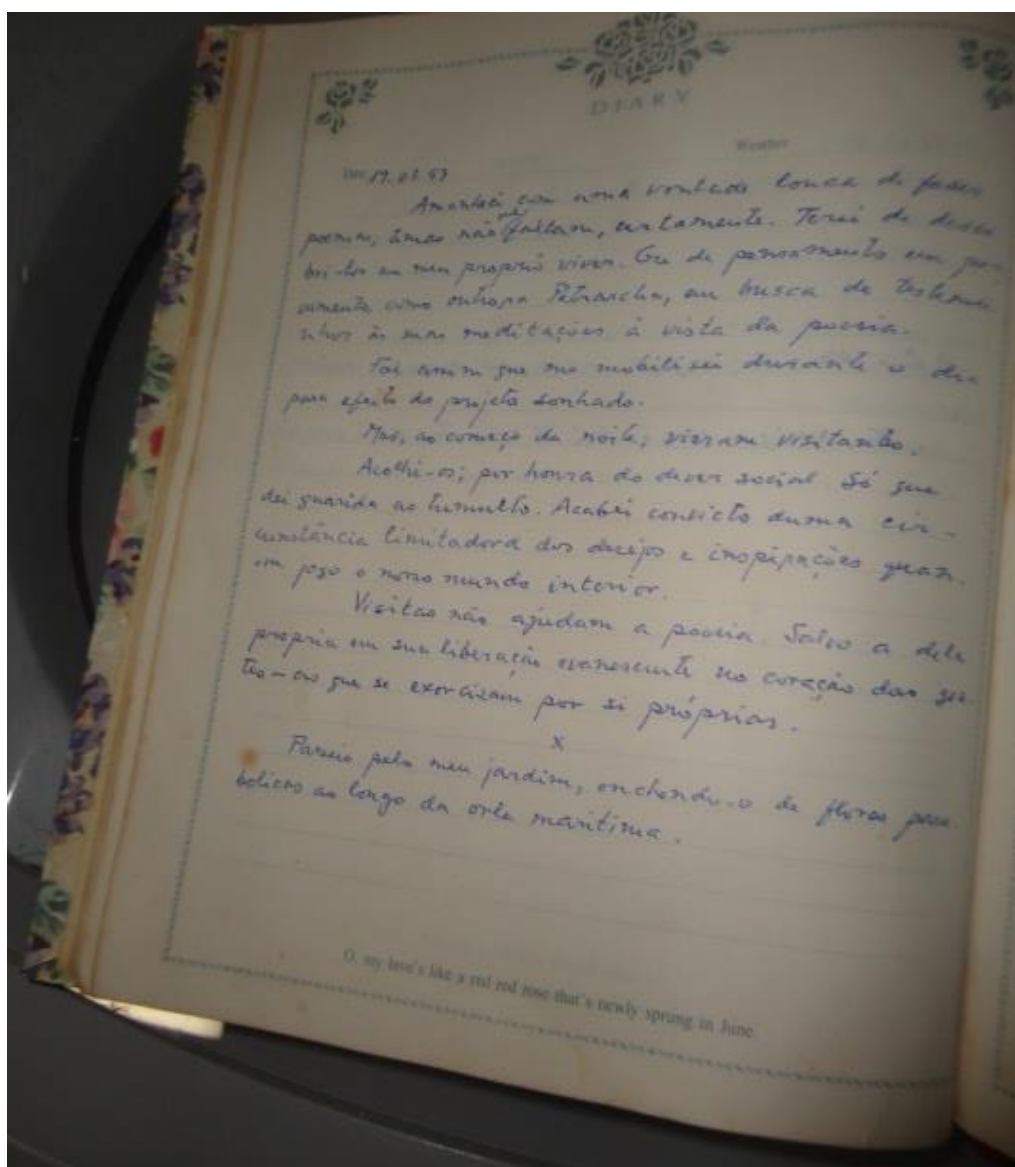 DIARY
Weather
Date 19.01.97
Amanheci com uma vontade louca de fazer
poemas, temas não me faltam, certamente. Terei de desco
bri-los em meu proprio viver. Ou de pensamento em
como outrora Petrarcha, em busca de testemu
nhos às suas meditações à vista da poesia.
Foi assim que me mobilizei durante o dia
para efeito do projeto sonhado.
Mas, ao começo da noite, vieram visitantes.
Acolhi-os, por honra do dever social. Só que
dei guarida ao tumulto. Acabei convicto duma cir-
cunstância limitadora dos desejos e inspirações quan.
em jogo o nosso mundo interior.
Visitas não ajudam a poesia. Salvo a dela
propria em sua liberação evanescente no coração das gen
tes - que se exorcizam por si próprias.
x
Passeio pelo meu jardim, enchendo-o de flores
ao longo da orla marítima.
O, my love's like a red red rose that's newly sprung in June